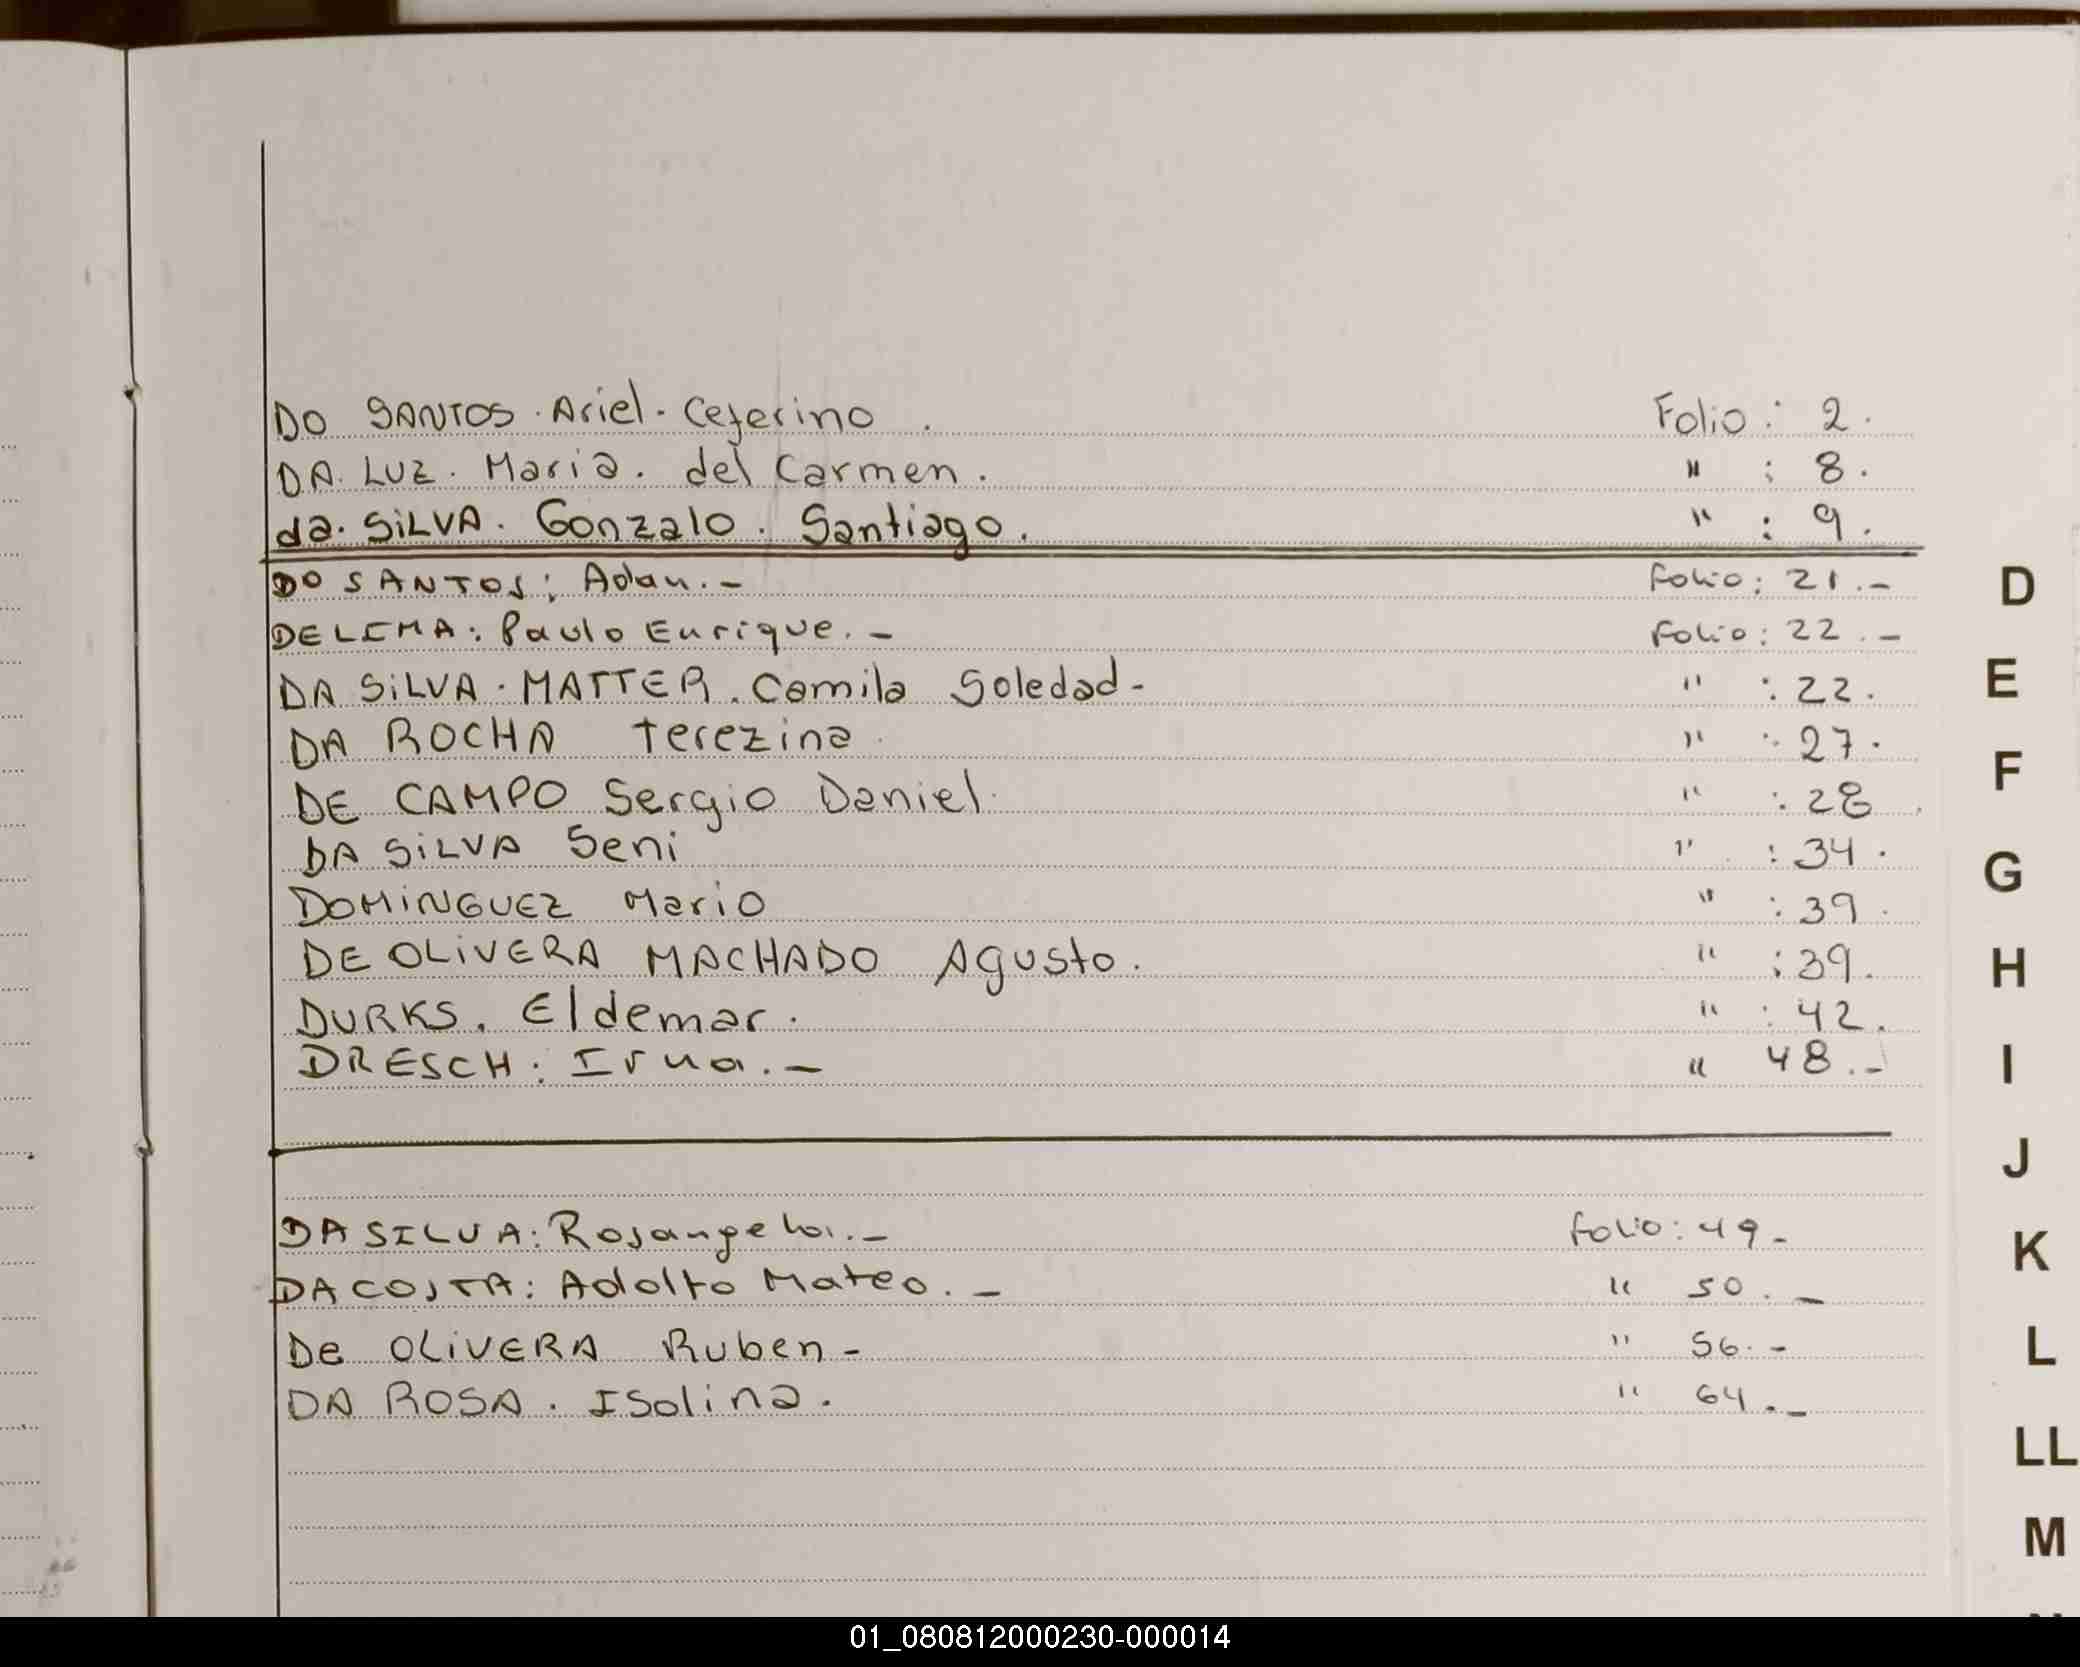 DO SANTOS. Ariel. Ceferino. Folio: 2.
DA. LUZ. Maria. del Carmen. " : 8.
da. SiLVA. Gonzalo. Santiago. " : 9.
DO SANTOS: Adan.- Folio: 21.-
DELIMA: Paulo Enrique.- Folio: 22.-
DA SiLVA. MATTER. Camila Soledad- " : 22.
DA ROCHA Terezina. " : 27.
DE CAMPO Sergio Daniel. " : 28.
DA SiLVA Seni " : 34.
DOMiNGUEZ Mario " : 39.
DE OLiVERA MACHADO Agusto. " : 39.
DURKS. Eldemar. " : 42.
DRESCH: Irna.- " 48.-
DA SILVA: Rosangela.- Folio: 49-
DA COSTA: Adolfo Mateo.- " 50.-
De OLiVERA Ruben- " 56.-
DA ROSA. Isolina. " 64.-
D
E
F
G
H
I
J
K
L
LL
M
01_080812000230-000014